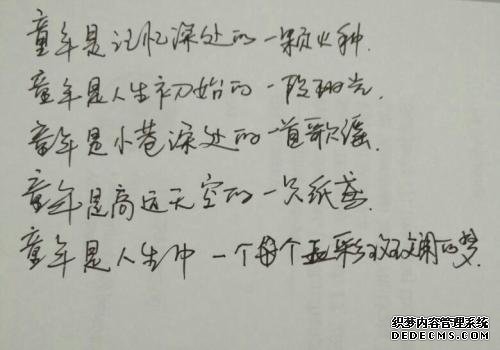 童年是记忆深处的一颗火种.
童年是人生初始的一段珊光.
童年是小巷深处的一首歌谣.
童年是高远天空的一只纸鸢.
童年是人生中一个个五彩斑斓的梦.
织梦内容管理系统
DEDECMS.COM